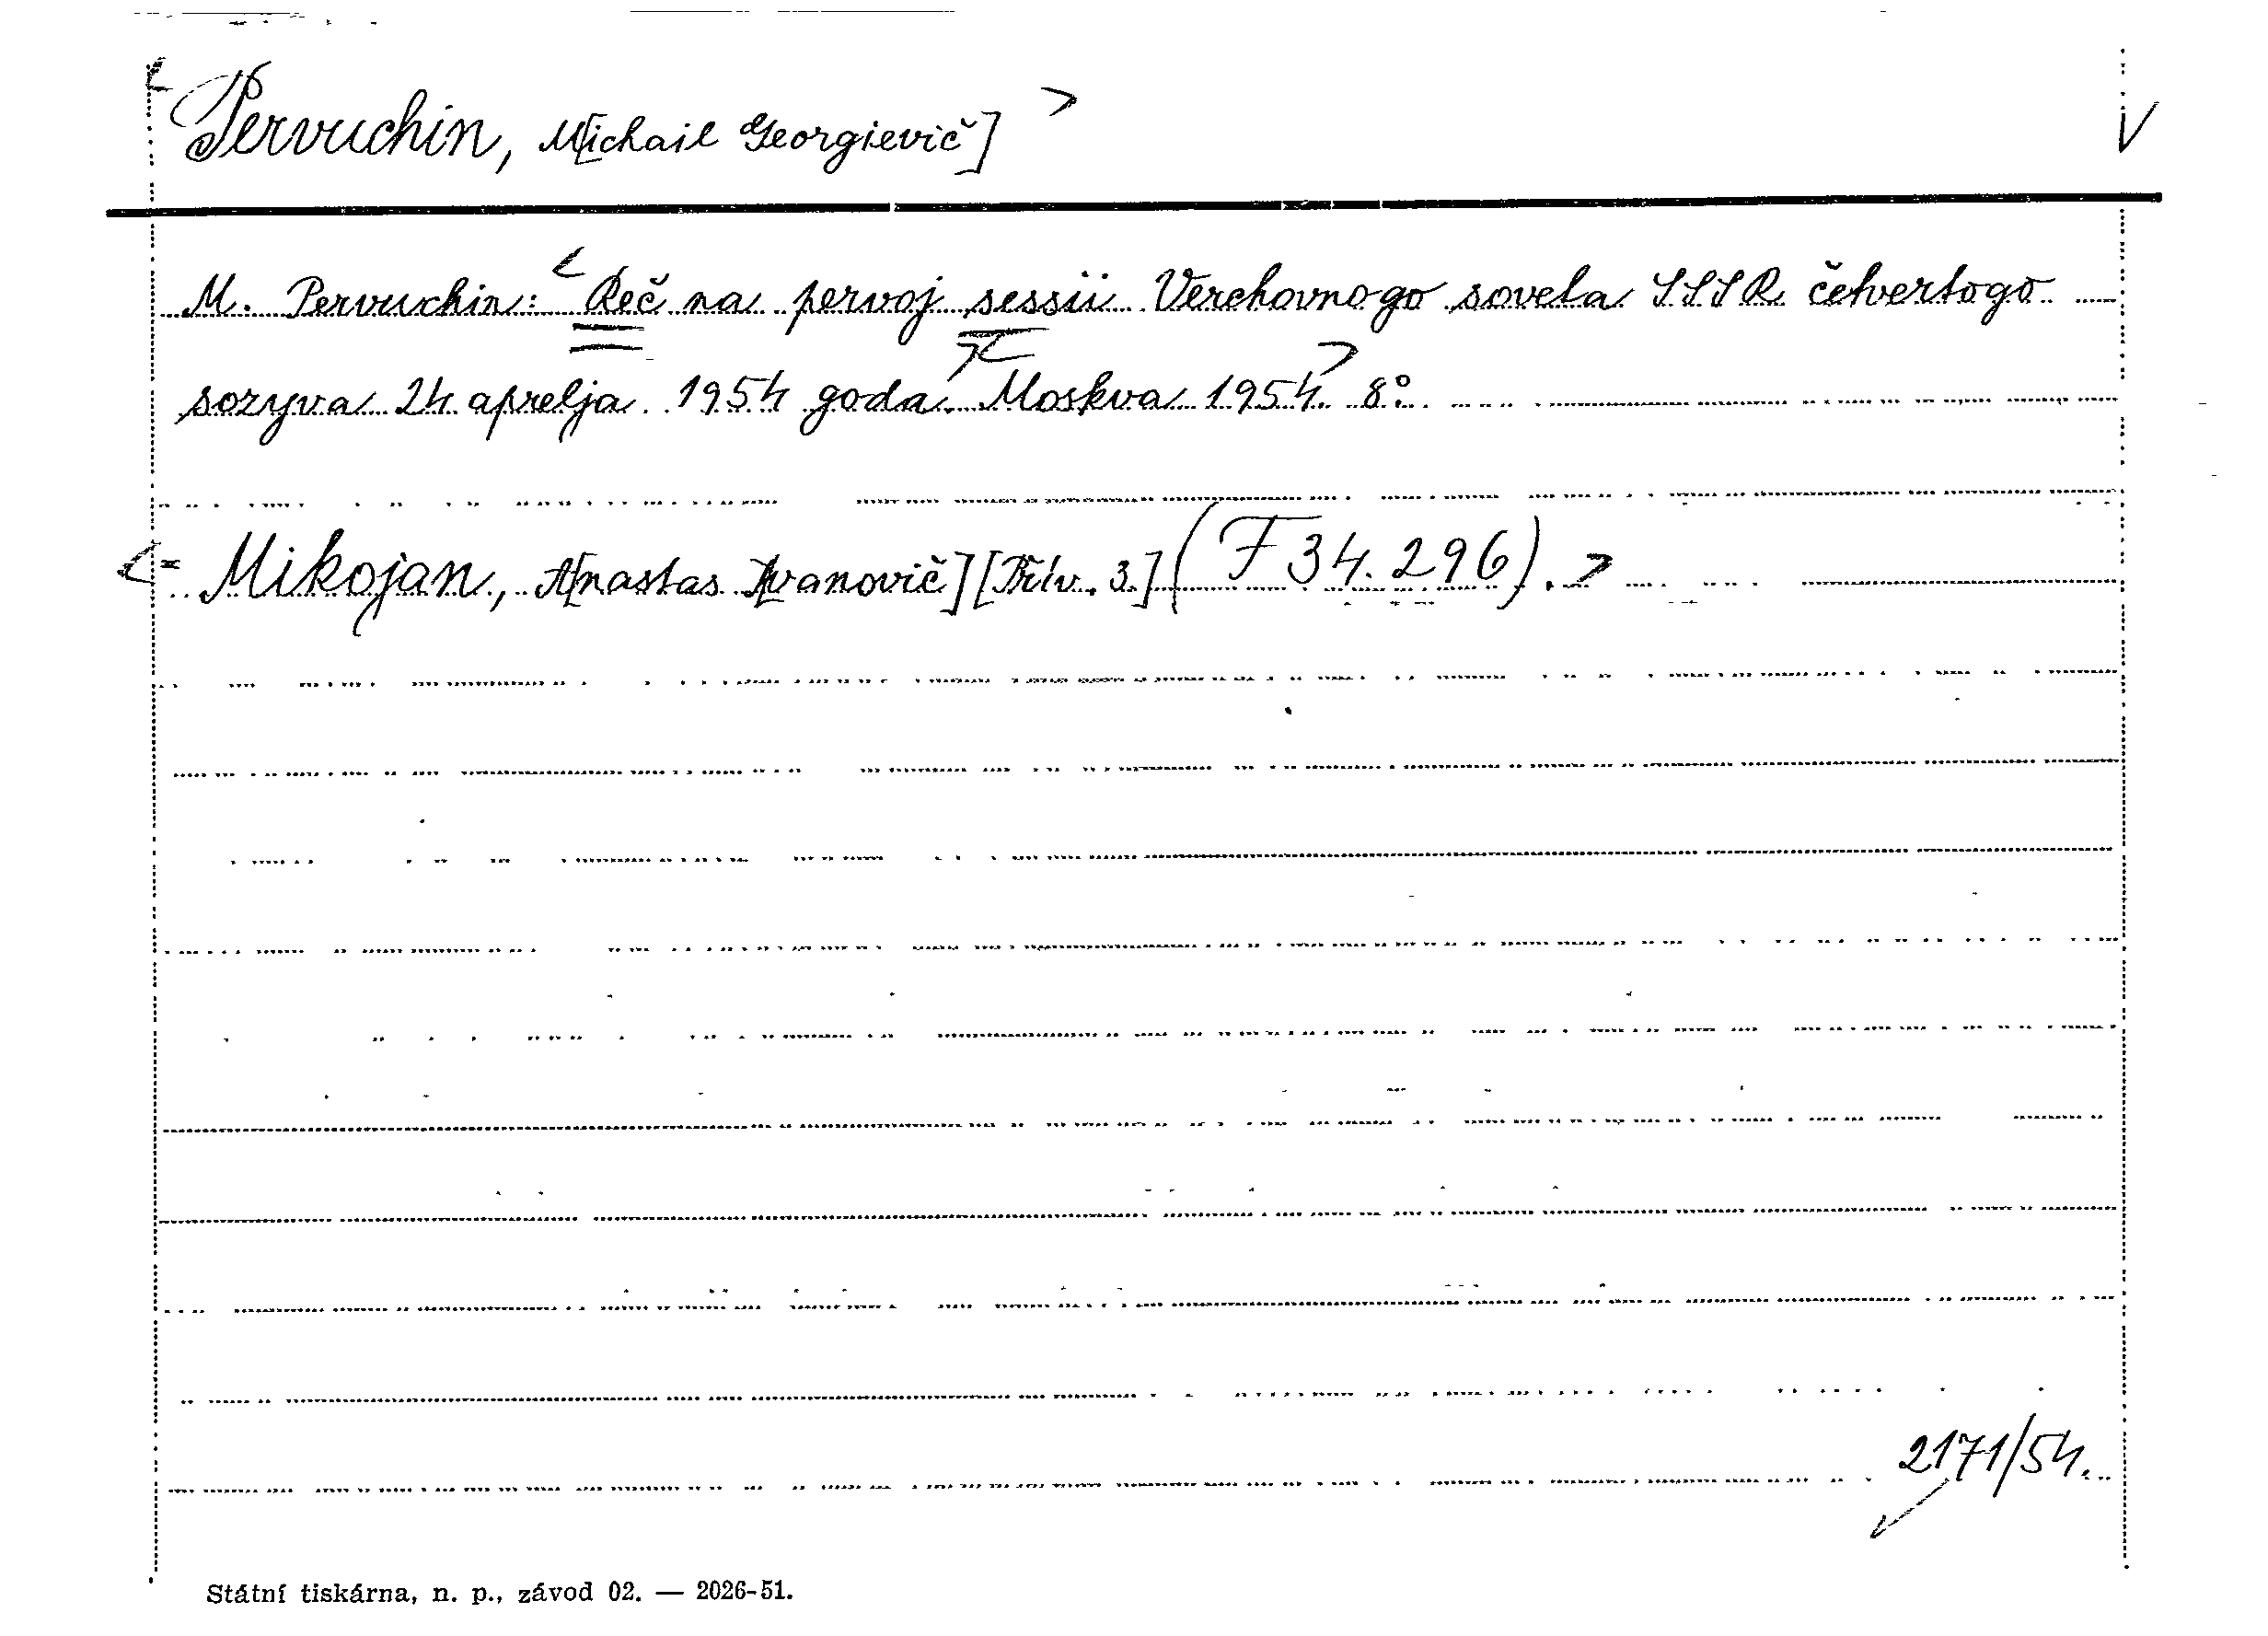 < Pervuchin, M[ichail Georgievič] > V
M. Pervuchin: < Reč na pervoj sessii Verchovnogo soveta SSSR četvertogo
sozyva 24 aprelja 1954 goda. >< Moskva 1954. > 8°.
< = Mikojan, A[nastas Ivanovič] [Přív. 3.] (F 34.296). >
2171/54.
Státní tiskárna, n. p., závod 02. — 2026-51.